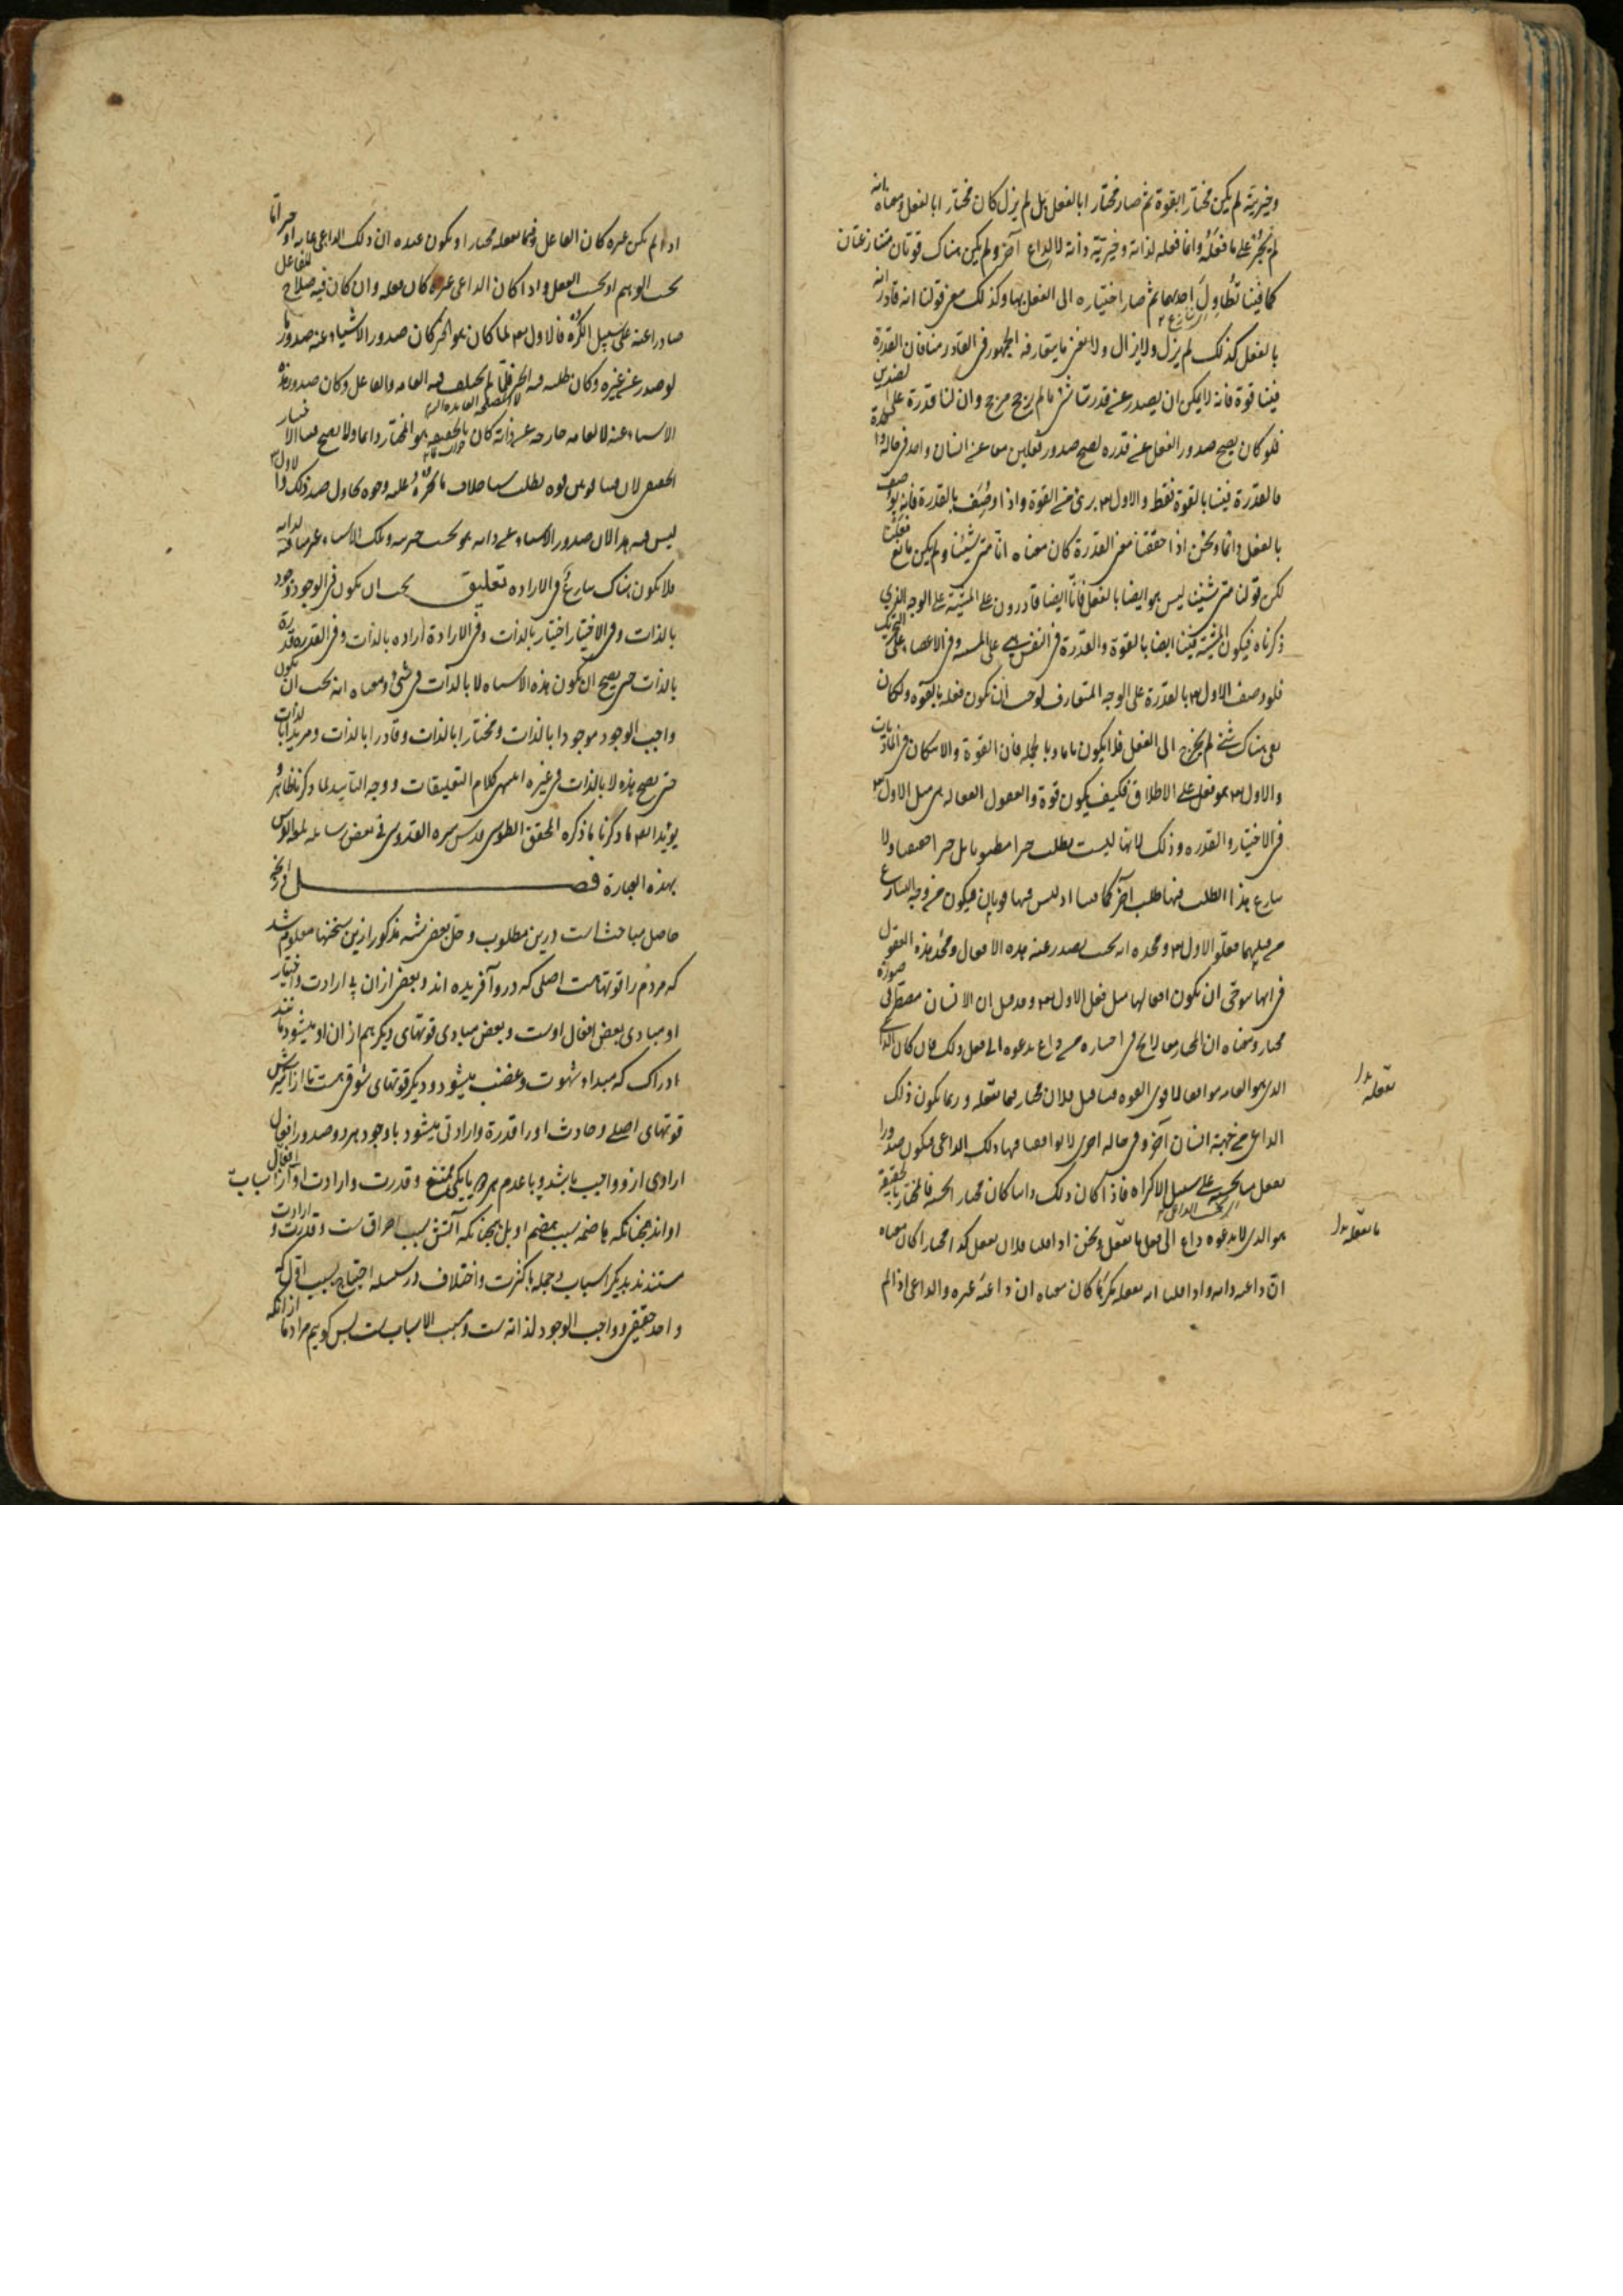 وخيريته لم يكن مختارا بالقوة ثم صار مختارا بالفعل بل لم يزل كان مختارا بالفعل ومعناه انه
لم يجبر على ما فعله وانما فعله لذاته وخيرية ذاته لا لداع آخر ولم يكن هناك قوتان متنازعتان
كما فينا تطاول احديهما ثم صار اختياره الى الفعل بها وكذلك معنى قولنا انه قادر انه
بالفعل كذلك لم يزل ولا يزال ولا نعنى ما يتعارفه الجمهور فى القادر منا فان القدرة
فينا قوة فانه لا يمكن ان يصدر عن قدرتنا شئ ما لم يرجح مرجح وان لنا قدرة على الضدين
فلو كان يصح صدور الفعل عن قدرة لصح صدور فعلين معا عن انسان واحد فى حالة واحدة
فالقدرة فينا بالقوة فقط والاول تع برئ من القوة واذا وصف بالقدرة فانه يوصف
بالفعل دائما ونحن اذا حققنا معنى القدرة كان معناه انا متى شئنا ولم يكن مانع فعلنا
لكن قولنا متى شئنا ليس هو ايضا بالفعل فانا ايضا قادرون على المشية على الوجه الذي
ذكرناه فيكون المشية فينا ايضا بالقوة والقدرة فى النفس على المشية وفى الاعضاء على التحريك
فلو وصف الاول تع بالقدرة على الوجه المتعارف لوجب ان يكون فعله بالقوة ولكان
بقى هناك شئ لم يخرج الى الفعل فلا يكون تاما وبالجملة فان القوة والامكان فى الماديات
والاول تع هو فعل على الاطلاق فكيف يكون قوة والعقول الفعالة هى مثل الاول تع
فى الاختيار والقدرة وذلك لانها ليست تطلب خيرا مظنونا بل خيرا حقيقيا ولا
ينازع هذا الطلب فيها طلب آخر كما فينا اذ ليس فيها قوتان فيكون من وجه التنازع
من قبلهما فعلو الاول تع ومجده انه بحيث يصدر عنه هذه الافعال ومجد هذه العقول
فى انها تتوخى ان يكون افعالها مثل فعل الاول تع وقد قيل ان الانسان مضطر فى صورة
مختار ومعناه ان المختار منا لا يخلو فى اختياره من داع يدعوه الى فعل ذلك فان كان الداعى
الذى هو الغاية موافقا لاقوى القوة فينا قيل فلان مختار فيما يفعله وربما يكون ذلك
الداعى من جهة انسان آخر وفى حالة اخرى لا يوافقنا فيها ذلك الداعى فيكون صدور ا
الفعل منا بحسبه على سبيل الاكراه فاذا كان ذلك ذاتيا كان مختارا بحسبه فالمختار بالحقيقة
هو الذى لا يدعوه داع الى فعل ما يفعل ونحن اذا قلنا فلان يفعل كذا مختارا كان معناه
ان داعيه ذاته واذا قلنا انه يفعله مكرها كان معناه ان داعيه غيره والداعى اذا لم
يفعله
ما يفعله
اذا لم يكن غيره كان الفاعل فيما يفعله مختارا ويكون عنده ان ذلك الداعى غاية او خير اما
بحسب الوهم او بحسب العقل واذا كان الداعى غيره كان فعله وان كان فيه صلاح للفاعل
صادرا عنه على سبيل الكره فالاول تع لما كان هو الخير كان صدور الاشياء عنه صدور ما
لو صدر عن غيره وكان طلبه فيه الخير فلما لم يختلف فيه الغاية والفاعل وكان صدور هذه
الاشياء عنه لا لغاية خارجة عن ذاته كان بالحقيقة هو المختار دائما ولا يصح فينا الاختيار
الحقيقى لان فينا قوتين قوة تطلب شيئا خلاف ما تختاره وعليه وجوه يحاول ضد ذلك والاول تع
ليس فيه هذا لان صدور الاشياء عن ذاته هو بحسب خيريته وتلك الاشياء غير منافية لذاته
فلا يكون هناك تنازع فى الارادة تعليق يجب ان يكون فى الوجود وجود
بالذات وفى الاختيار اختيار بالذات وفى الارادة ارادة بالذات وفى القدرة قدرة
بالذات حتى يصح ان يكون هذه الاشياء لا بالذات فى شئ ومعناه انه يجب ان يكون
واجب الوجود موجودا بالذات ومختارا بالذات وقادرا بالذات ومريدا بالذات
حتى يصح هذه لا بالذات فى غيره انتهى كلام التعليقات ووجه التأييد لما ذكرنا ظاهر و
يؤيد ايضا ما ذكرنا ما ذكره المحقق الطوسى قدس سره القدوسى فى بعض رسائله
بهذه العبارة فصل
حاصل مباحث است درين مطلوب وحل بعضى شبه مذكور ازين سخنها معلوم شد
كه مردم را قوتهاست اصلى كه درو آفريده اند وبعضى ازان بى ارادت واختيار
او مبادى بعض افعال اوست وبعض مبادى قوتهاى ديگر هم ازان او ميشود مانند
ادراك كه مبداء شهوت وغضب ميشود وديگر قوتهاى شوقى هست تا از آميزش
قوتهاى اصلى وحادث او را قدرة وارادتى ميشود با وجود هر دو صدور افعال
ارادى ازو واجب باشد وبا عدم هر دو يا يكى ممتنع وقدرت وارادت او از اسباب افعال
اواند همچنانكه هاضمه سبب هضم او بل همچنانكه آتش سبب احراق است وقدرت و ارادت
مستندند بديگر اسباب وجمله با كثرت واختلاف در سلسله احتياج بسبب اول كه
واحد حقيقى وواجب الوجود لذاته ست ومسبب الاسباب ست پس گوييم مراد ما از آنكه